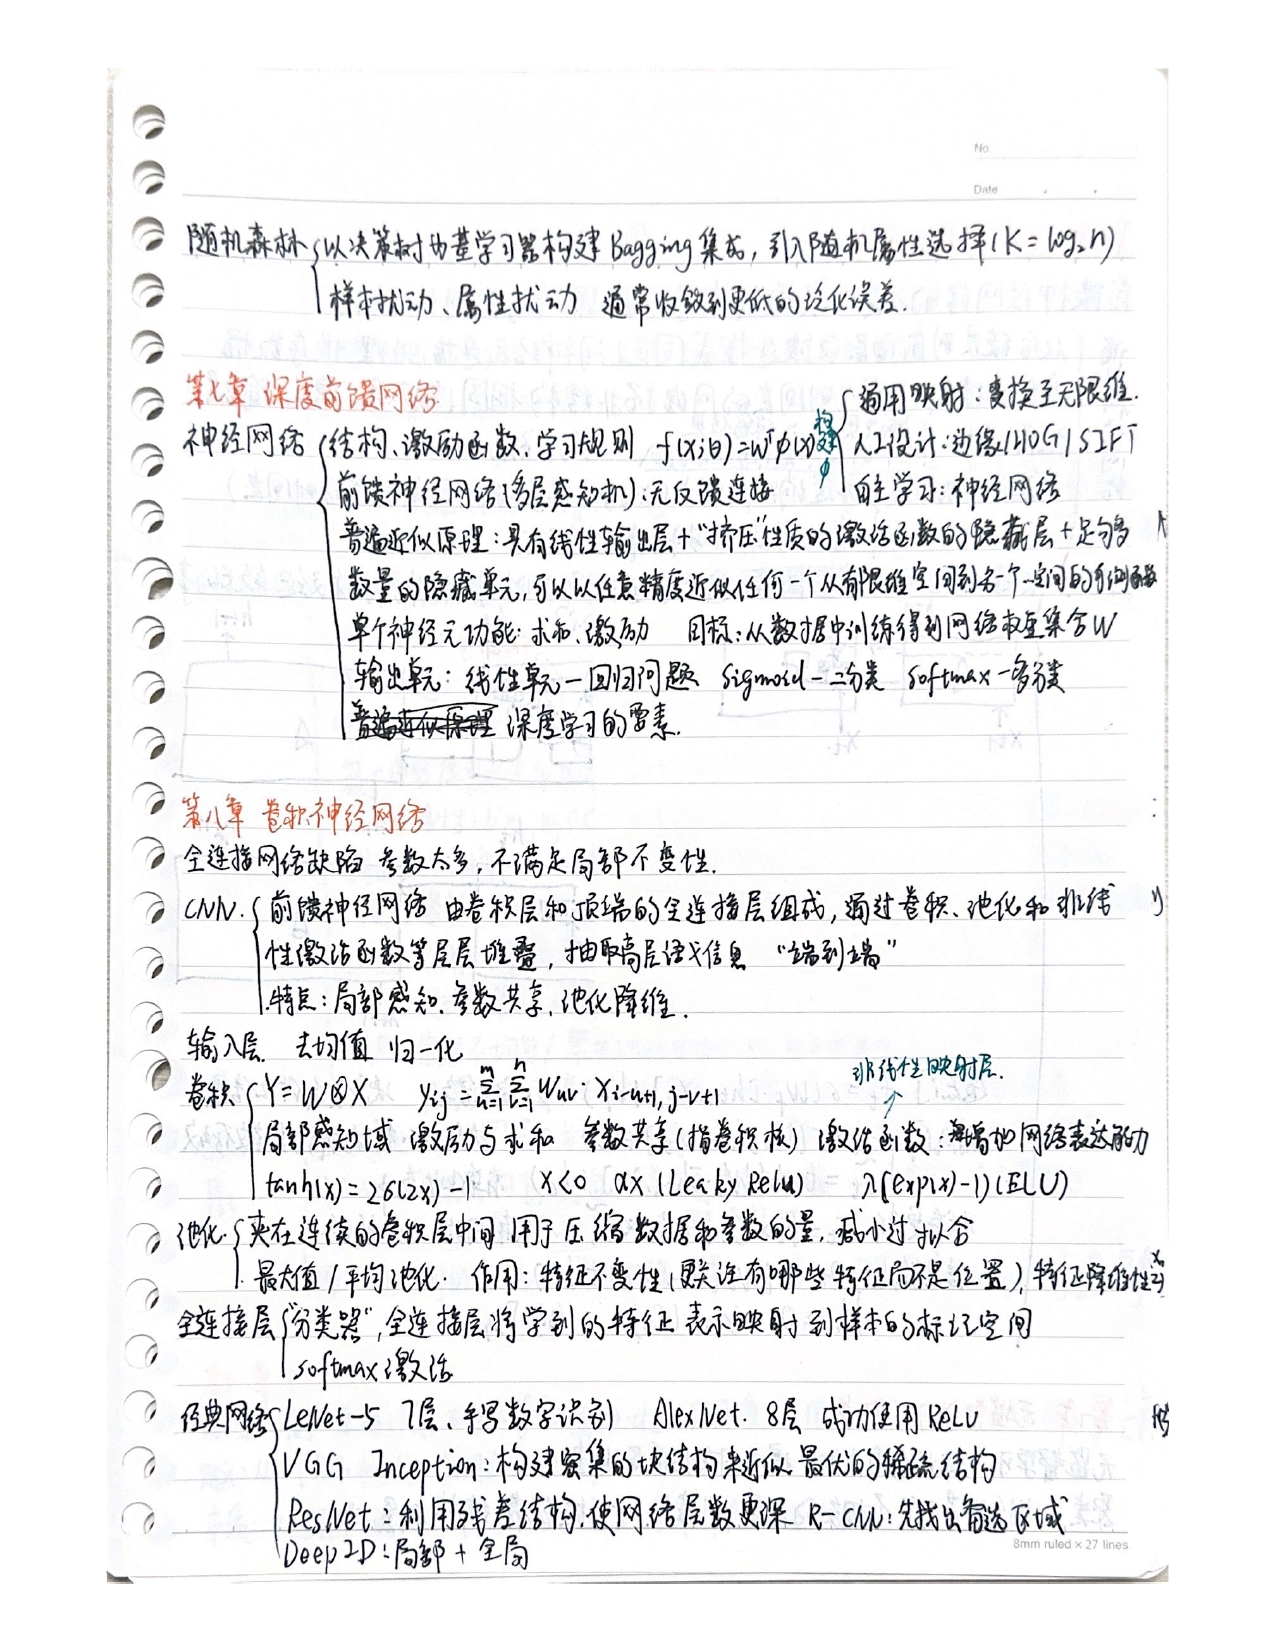 No.
Date
随机森林 以决策树为基学习器构建Bagging集成，引入随机属性选择(K=log₂n)
样本扰动、属性扰动 通常收敛到更低的泛化误差.
第七章 深度前馈网络
通用映射：变换至无限维.
神经网络 结构、激励函数、学习规则 f(x;θ)=wᵀφ(x) 构建φ 人工设计：边缘/HOG/SIFT
前馈神经网络(多层感知机)：无反馈连接 自主学习：神经网络
普遍近似原理：具有线性输出层+“挤压”性质的激活函数的隐藏层+足够多
数量的隐藏单元，可以以任意精度近似任何一个从有限维空间到另一个空间的可测函数
单个神经元功能：求和、激励 目标：从数据中训练得到网络权重集合W
输出单元：线性单元—回归问题 Sigmoid—二分类 softmax—多分类
普遍近似原理 深度学习的要素.
第八章 卷积神经网络
全连接网络缺陷 参数太多，不满足局部不变性.
CNN. 前馈神经网络 由卷积层和顶端的全连接层组成，通过卷积、池化和非线
性激活函数等层层堆叠，抽取高层语义信息 “端到端”
特点：局部感知、参数共享、池化降维.
输入层. 去均值 归一化
非线性映射层.
卷积 Y=W⊗X yᵢⱼ=Σᵐᵤ₌₁Σⁿᵥ₌₁ Wuv·Xi-u+1,j-v+1
局部感知域 激励与求和 参数共享(指卷积核) 激活函数：增加网络表达能力
tanh(x)=2σ(2x)-1 x<0 αx(Leaky Relu) λ(exp(x)-1)(ELU)
池化. 夹在连续的卷积层中间 用于压缩数据和参数的量，减小过拟合
最大值/平均池化. 作用：特征不变性(更关注有哪些特征而不是位置)，特征降维性
全连接层 “分类器”，全连接层将学到的特征表示映射到样本的标记空间
softmax激活
经典网络 LeNet-5 7层、手写数字识别 AlexNet. 8层 成功使用ReLU
VGG Inception：构建密集的块结构来近似最优的稀疏结构
ResNet：利用残差结构，使网络层数更深 R-CNN：先找出备选区域
DeepID：局部+全局
8mm ruled × 27 lines